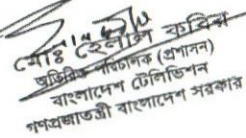 মোঃ হেলাল কবির
অতিরিক্ত পরিচালক (প্রশাসন)
বাংলাদেশ টেলিভিশন
গণপ্রজাতন্ত্রী বাংলাদেশ সরকার